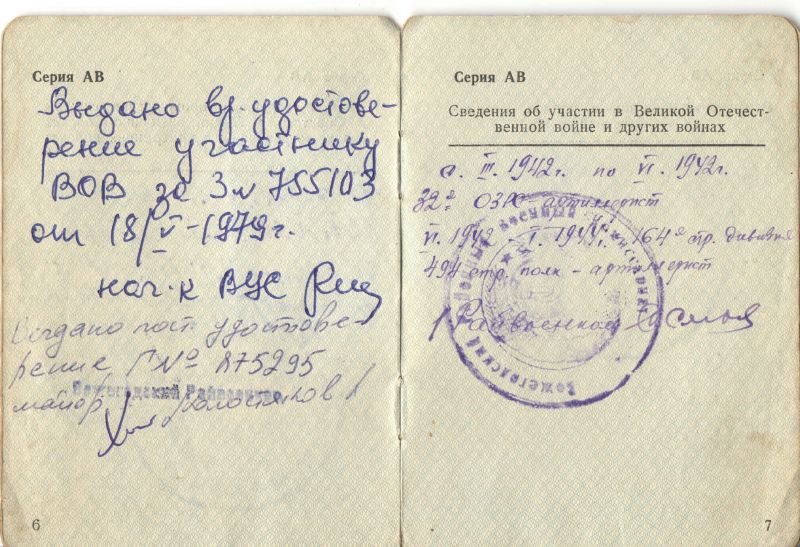 Серия АВ
Выдано вр. удостове-
рение участнику
ВОВ за З № 755103
от 18/V-1979г.
нач-к ВУС
Выдано пост. удостове-
рение Г № 875295
Вожегодский Райвоенком
майор
6
Серия АВ
Сведения об участии в Великой Отечест-
венной войне и других войнах
с III. 1942г. по VI. 1942г.
32й ОЗРС артиллерист
VI. 1942 - I. 1944г. 164й стр. дивизия
494 стр. полк - артиллерист
Райвоенком
7